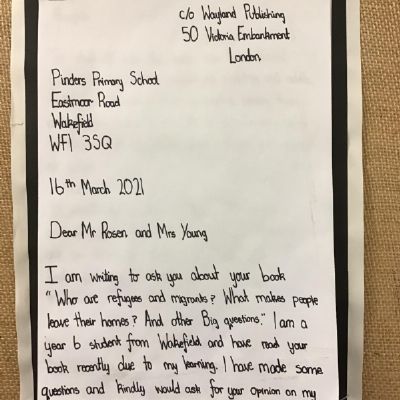 c/o Wayland Publishing
50 Victoria Embankment
London
Pinders Primary School
Eastmoor Road
Wakefield
WF1 3SQ
16th March 2021
Dear Mr Rosen and Mrs Young
I am writing to ask you about your book
"Who are refugees and migrants? What makes people
leave their homes? And other Big questions." I am a
year 6 student from Wakefield and have read your
book recently due to my learning. I have made some
questions and kindly would ask for your opinion on my